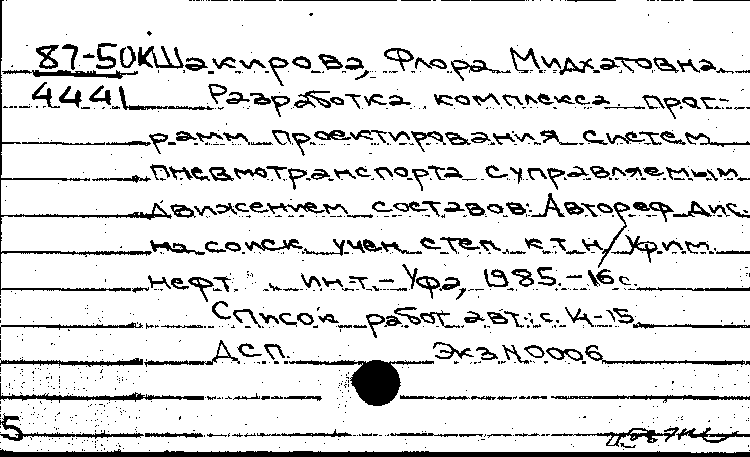 87-50К Шакирова, Флора Мидхатовна
4441 Разработка комплекса прог-
рамм проектирования систем
пневмотранспорта с управляемым
движением составов: Автореф дис.
на соиск учен степ к.т.н / Уфим.
нефт. ин-т. - Уфа, 1985. - 16 с.
Список работ авт.: с. 14-15
ДСП Экз N 0006
5